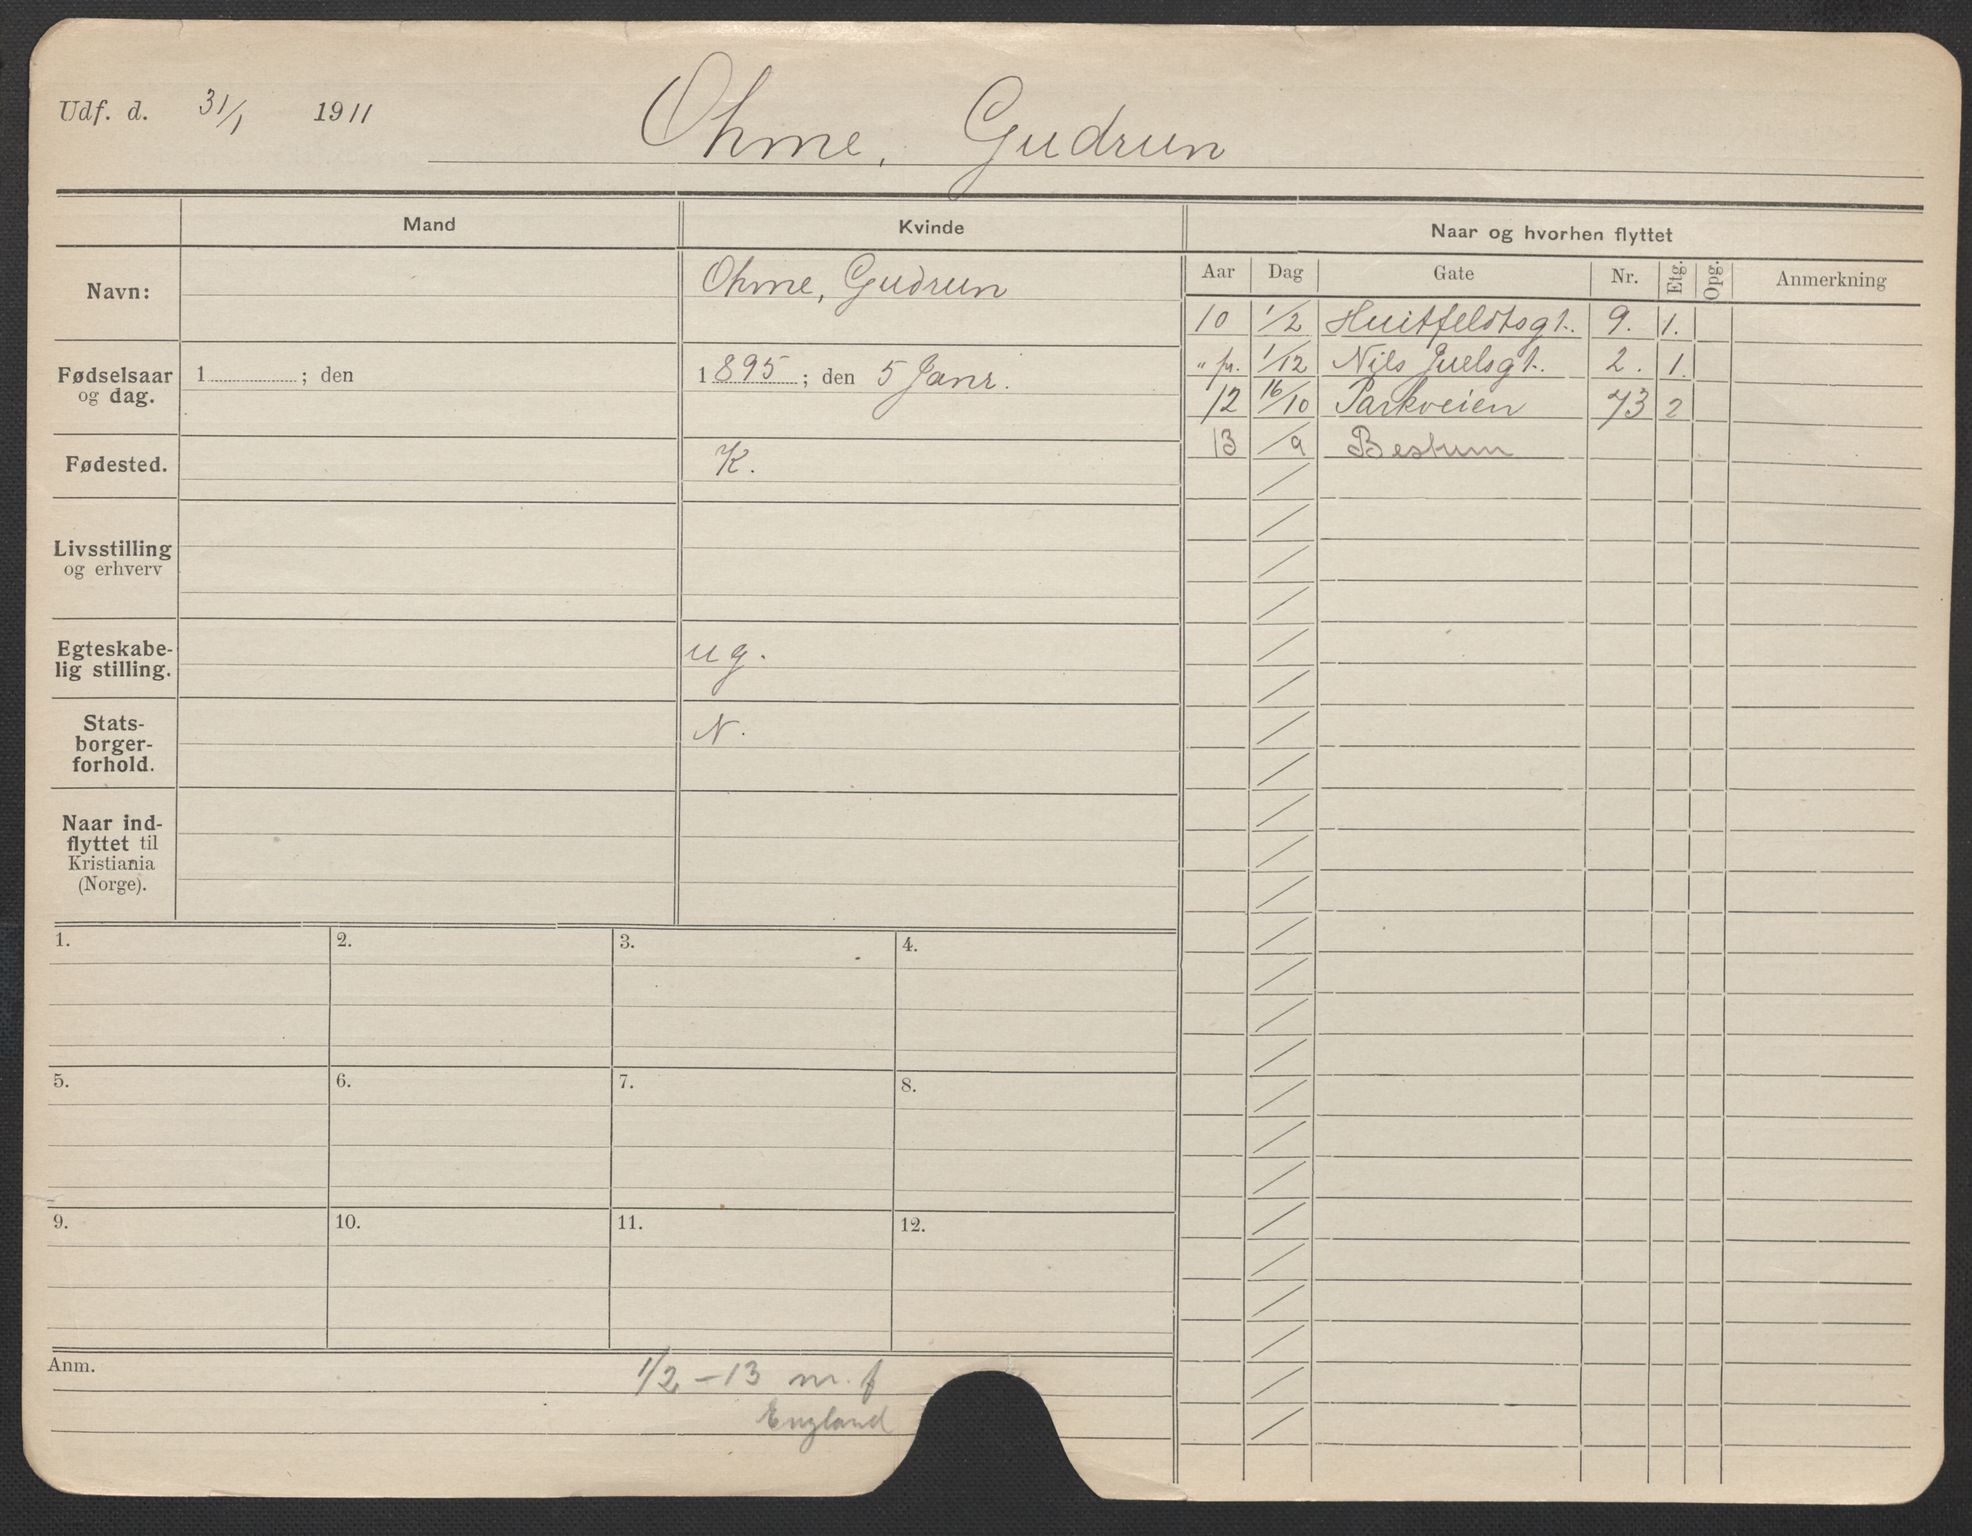 Udf. d. 31/1 1911 Ohme, Gudrun
Mand Kvinde Naar og hvorhen flyttet
Aar Dag Gate Nr. Etg. Opg. Anmerkning
Navn: Ohme, Gudrun
10 1/2 Huitfeldtsgt. 9. 1.
" pr. 1/12 Nils Juelsgt. 2. 1.
12 16/10 Parkveien 73 2
13 /9 Bestum
Fødselsaar
og dag.
1 ; den
1895; den 5 Janr.
Fødested. K.
Livsstilling
og erhverv
Egteskabe-
lig stilling. ug.
Stats-
borger-
forhold. N.
Naar ind-
flyttet til
Kristiania
(Norge).
1. 2. 3. 4.
5. 6. 7. 8.
9. 10. 11. 12.
Anm. 1/2 - 13 m. f
England